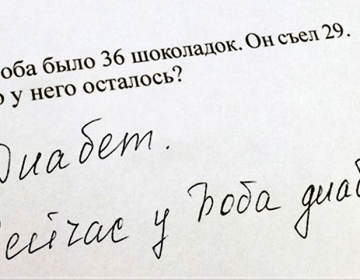 оба было 36 шоколадок. Он съел 29.
о у него осталось?
Диабет.
ейчас у Боба диаб